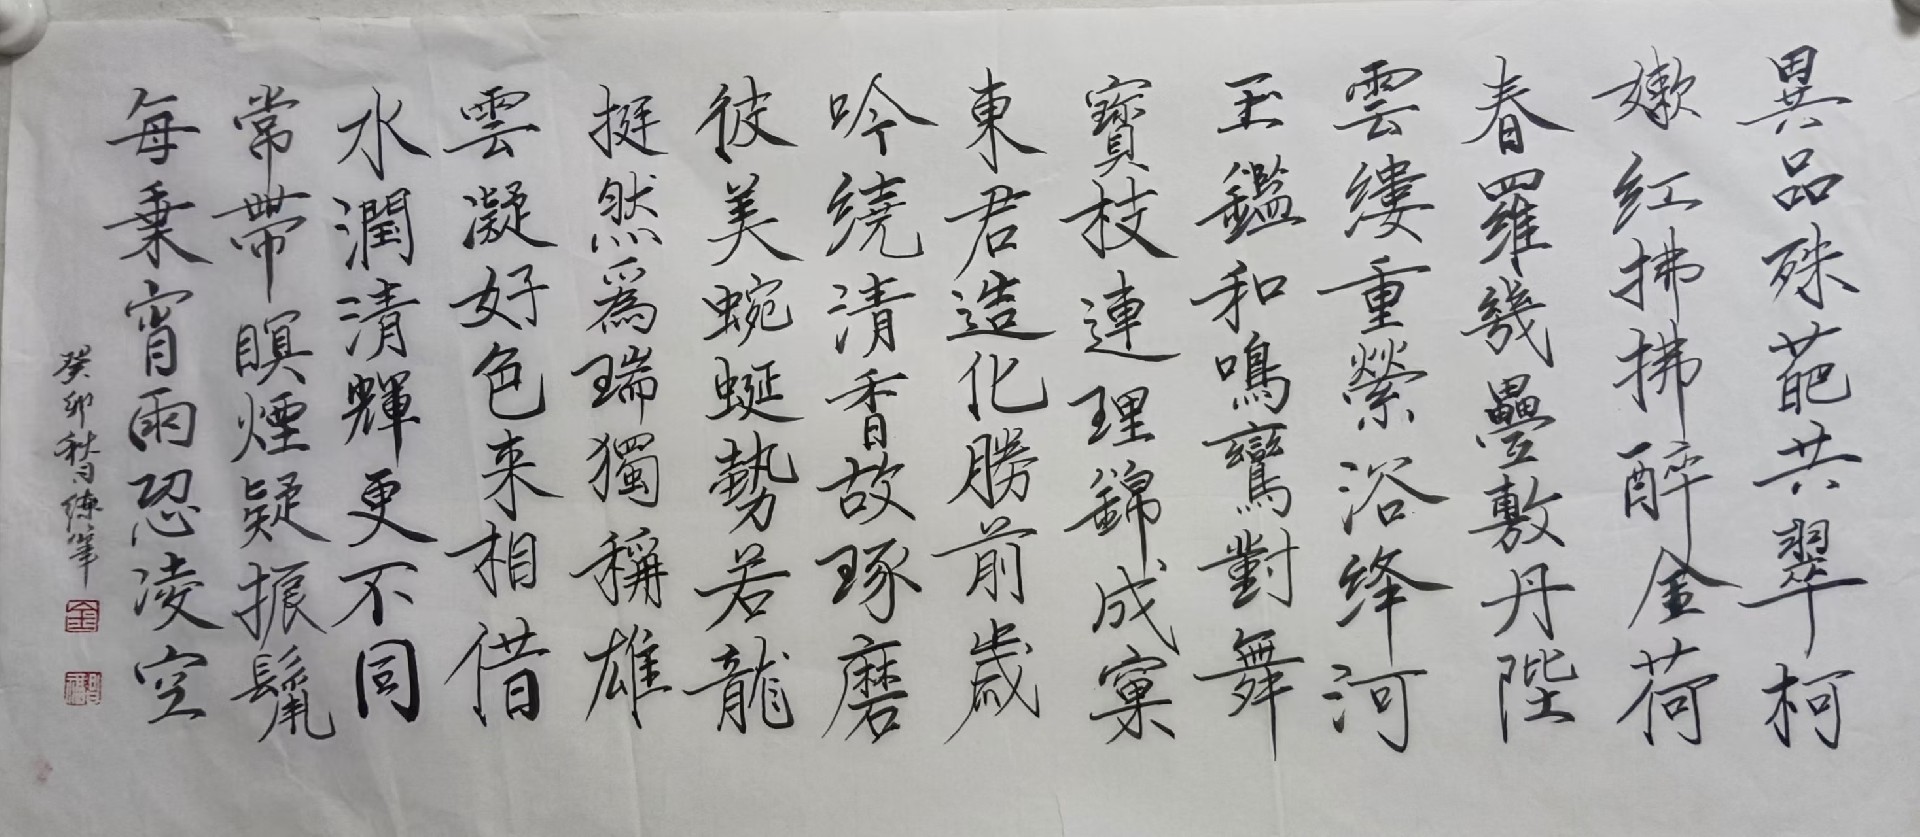 異品殊葩共翠柯
嫩紅拂拂醉金荷
春羅幾疊敷丹陛
雲縷重縈浴絳河
玉鑑和鳴鸞對舞
寶枝連理錦成窠
東君造化勝前歲
吟繞清香故琢磨
彼美蜿蜒勢若龍
挺然爲瑞獨稱雄
雲凝好色来相借
水潤清輝更不同
常帶瞑煙疑振鬣
每乗宵雨恐凌空
癸卯秋習練筆